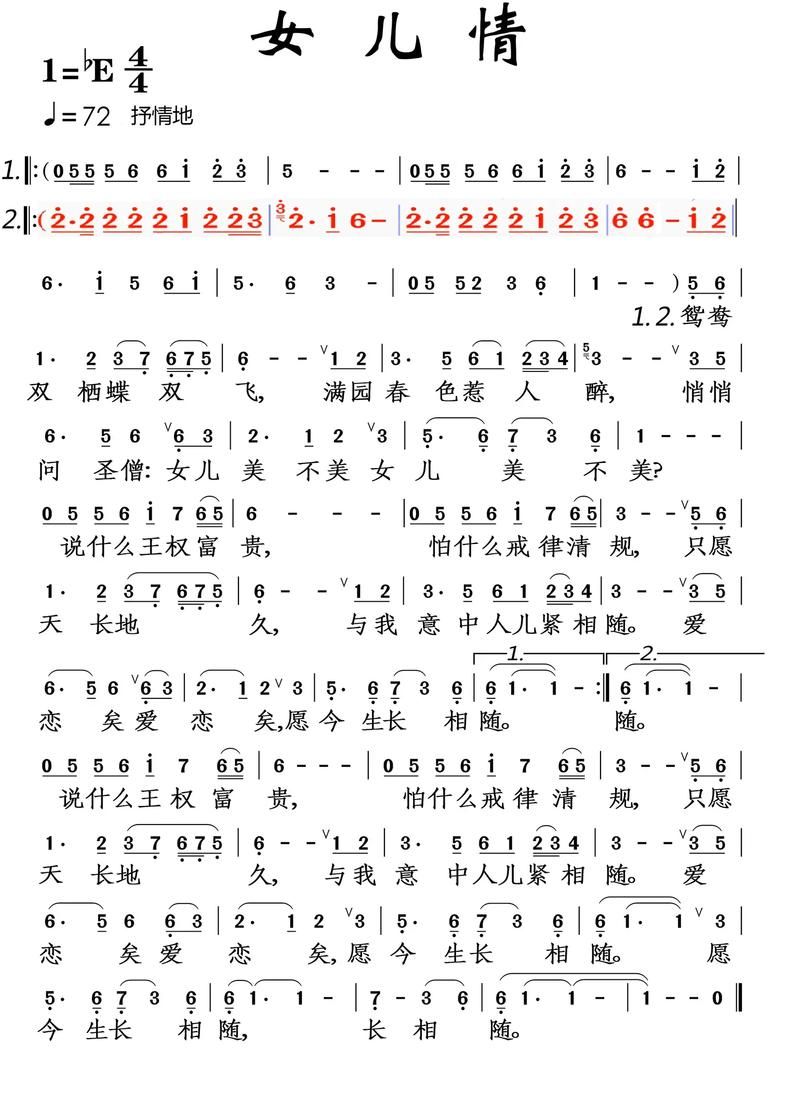 女儿情
1=♭E 4/4
♩=72 抒情地
1.‖:(0 5 5 5 6 6 i̇ 2̇ 3̇ | 5 - - - | 0 5 5 5 6 6 i̇ 2̇ 3̇ | 6 - - i̇ 2̇ |
2.‖:(2̇· 2̇ 2̇ 2̇ 2̇ i̇ 2̇ 2̇ 3̇ | 3̇ 2̇· i̇ 6 - | 2̇· 2̇ 2̇ 2̇ 2̇ i̇ 2̇ 3̇ | 6 6 - i̇ 2̇ |
6· i̇ 5 6 i̇ | 5· 6 3 - | 0 5 5 2 3 6̣ | 1 - - ) 5̣ 6̣ |
1.2.鸳鸯
1· 2 3 7̣ 6̣ 7̣ 5̣ | 6̣ - - ∨ 1 2 | 3· 5 6 1 2 3 4 | 5 3 - - ∨ 3 5 |
双 栖蝶 双 飞, 满园春 色惹 人 醉, 悄悄
6· 5 6 ∨ 6̣ 3 | 2· 1 2 ∨ 3 | 5̣· 6̣ 7̣ 3 6̣ | 1 - - - |
问 圣僧: 女儿 美 不美 女 儿 美 不 美?
0 5 5 6 i̇ 7 6 5 | 6 - - - | 0 5 5 6 i̇ 7 6 5 | 3 - - ∨ 5̣ 6̣ |
说什么王权富 贵, 怕什么戒 律清 规, 只愿
1· 2 3 7̣ 6̣ 7̣ 5̣ | 6̣ - - ∨ 1 2 | 3· 5 6 1 2 3 4 | 3 - - ∨ 3 5 |
天 长地 久, 与我 意 中人儿紧 相 随。 爱
6· 5 6 ∨ 6̣ 3 | 2· 1 2 ∨ 3 | 5̣· 6̣ 7̣ 3 6̣ | 1. 6̣ 1· 1 - :‖ 2. 6̣ 1· 1 - |
恋 矣爱 恋 矣,愿 今 生长 相 随。 随。
0 5 5 6 i̇ 7 6 5 | 6 - - - | 0 5 5 6 i̇ 7 6 5 | 3 - - ∨ 5̣ 6̣ |
说什么王 权 富 贵, 怕什么戒 律 清 规, 只愿
1· 2 3 7̣ 6̣ 7̣ 5̣ | 6̣ - - ∨ 1 2 | 3· 5 6 1 2 3 4 | 3 - - ∨ 3 5 |
天 长地 久, 与我 意 中人儿紧 相 随。 爱
6· 5 6 6̣ 3 | 2· 1 2 ∨ 3 | 5̣· 6̣ 7̣ 3 6̣ | 6̣ 1· 1 ∨ 3 |
恋 矣 爱 恋 矣, 愿 今 生长 相 随。 愿
5̣· 6̣ 7̣ 3 6̣ | 6̣ 1· 1 - | 7̣ - 3 6̣ | 6̣ 1· 1 - | 1 - - 0 ‖
今 生长 相 随, 长 相 随。